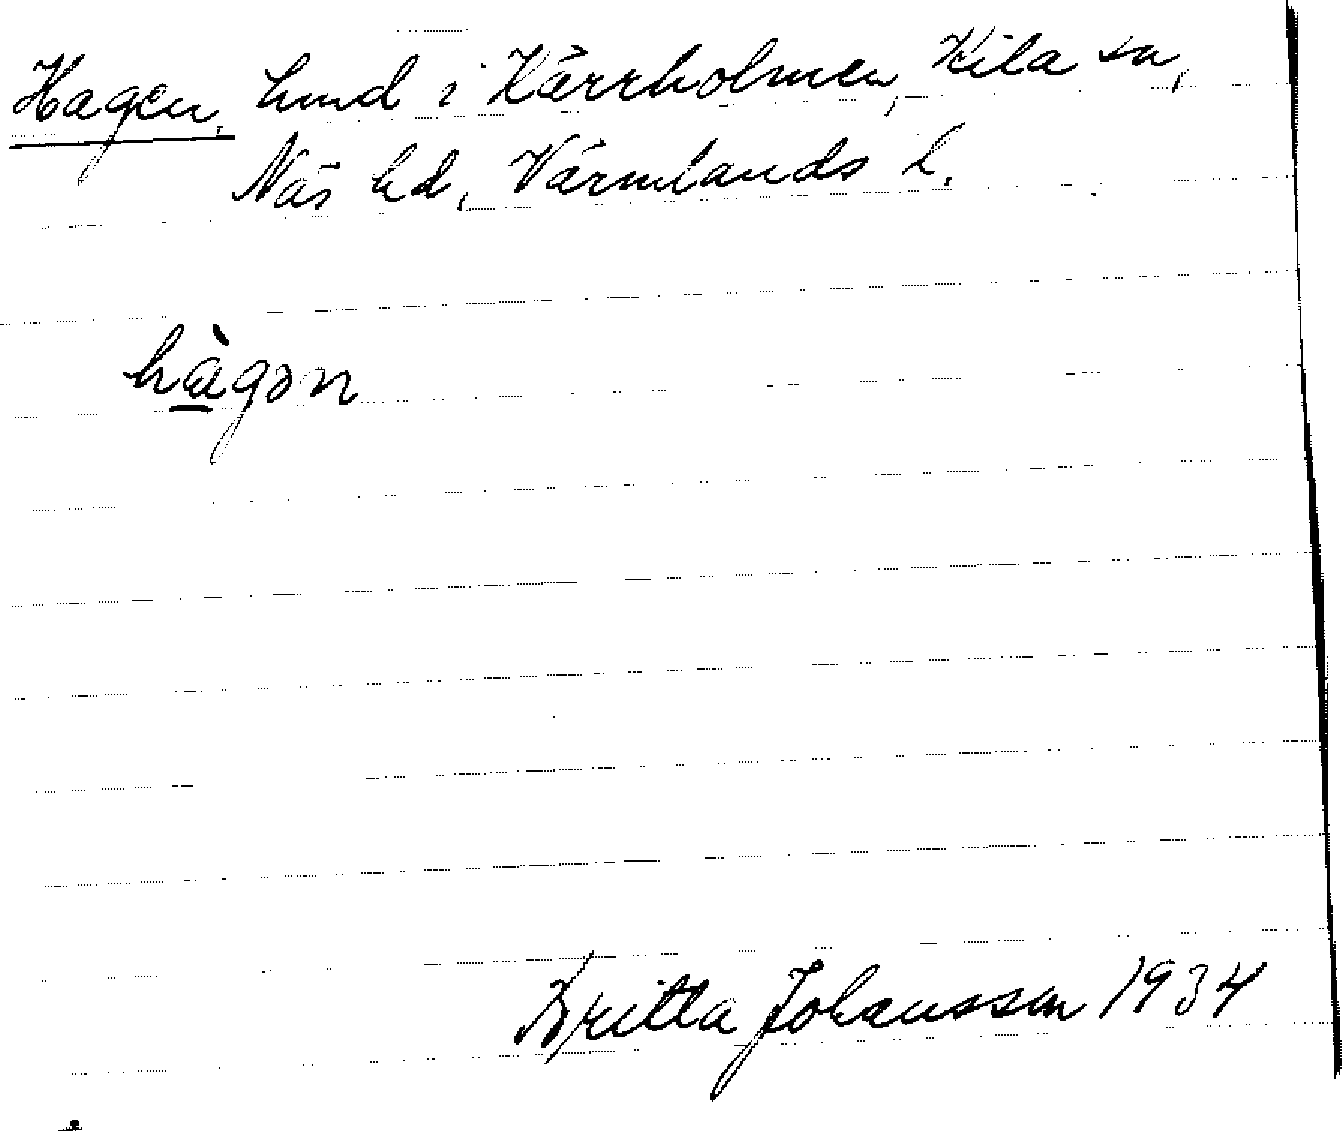 Hagen, lund i Kärrholmen, Kila sn,
Näs hd, Värmlands l.
hàgon
Britta Johansson 1934